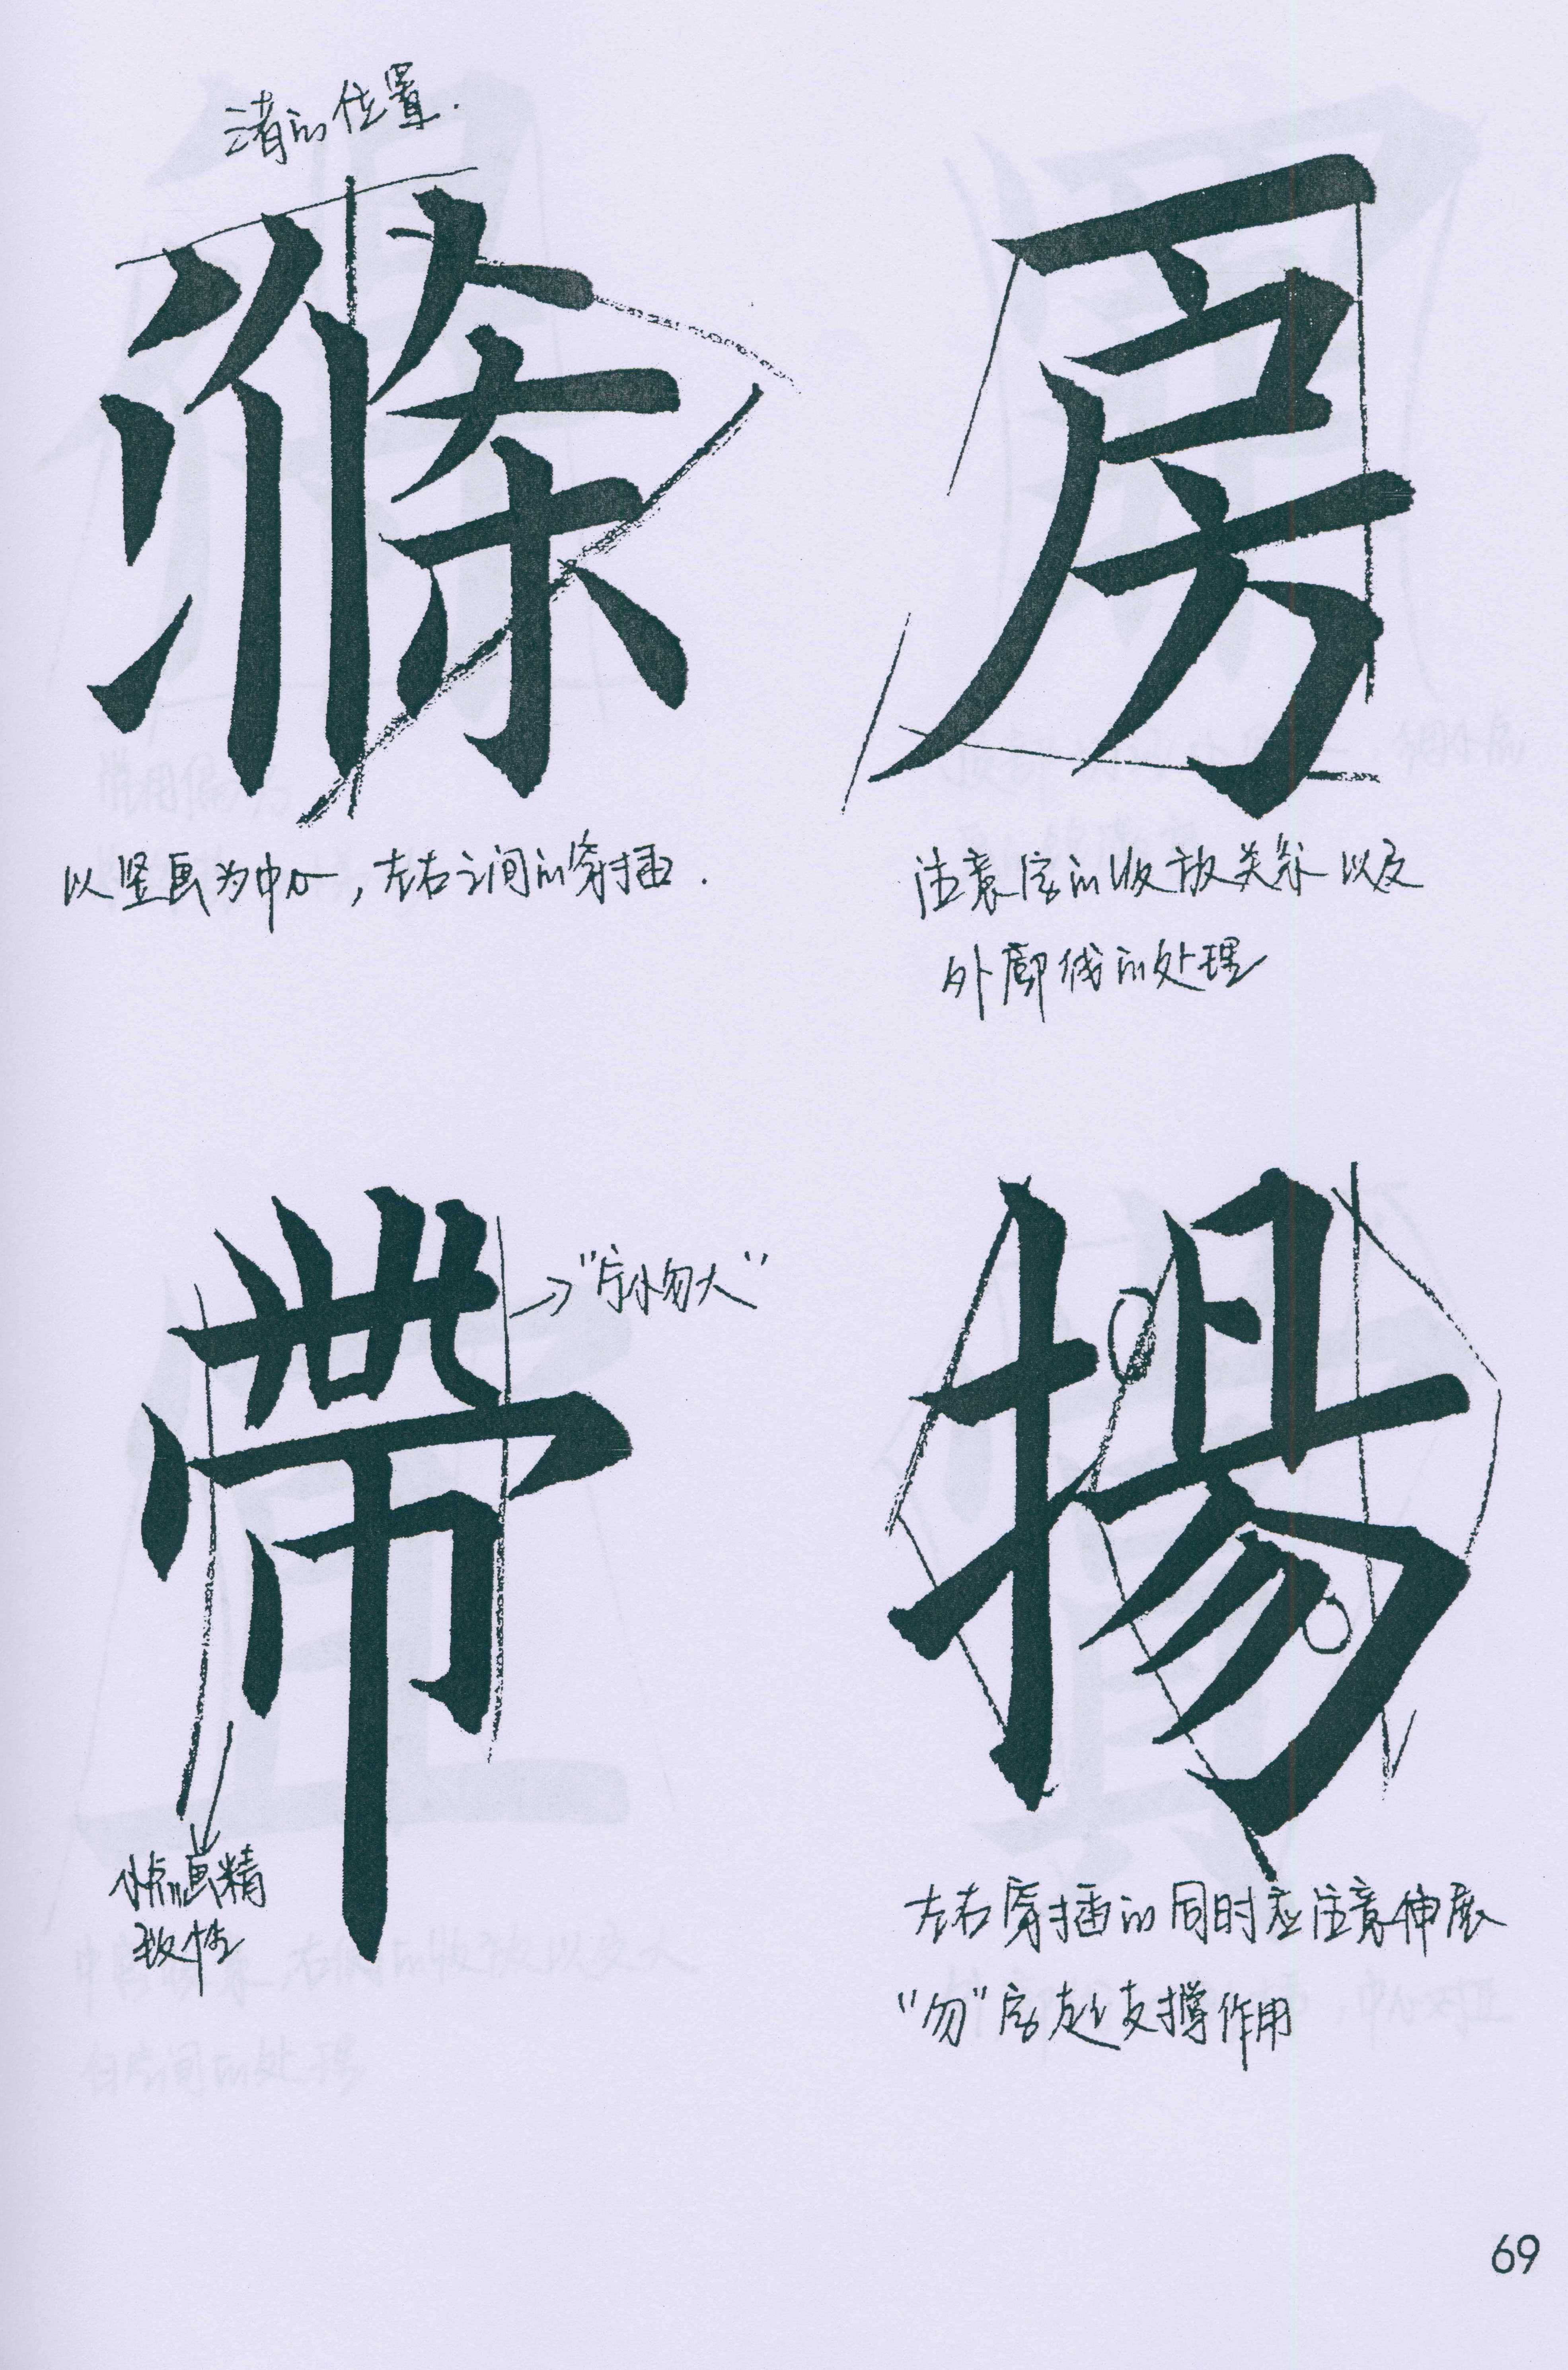 三者的位置.
滌
房
以竖画为中心,左右之间的穿插.
注意字的收放关系以及
外廓线的处理
帶
揚
→"宁小勿大"
小点画精
致性
左右穿插的同时应注意伸展
"勿"字起支撑作用
69